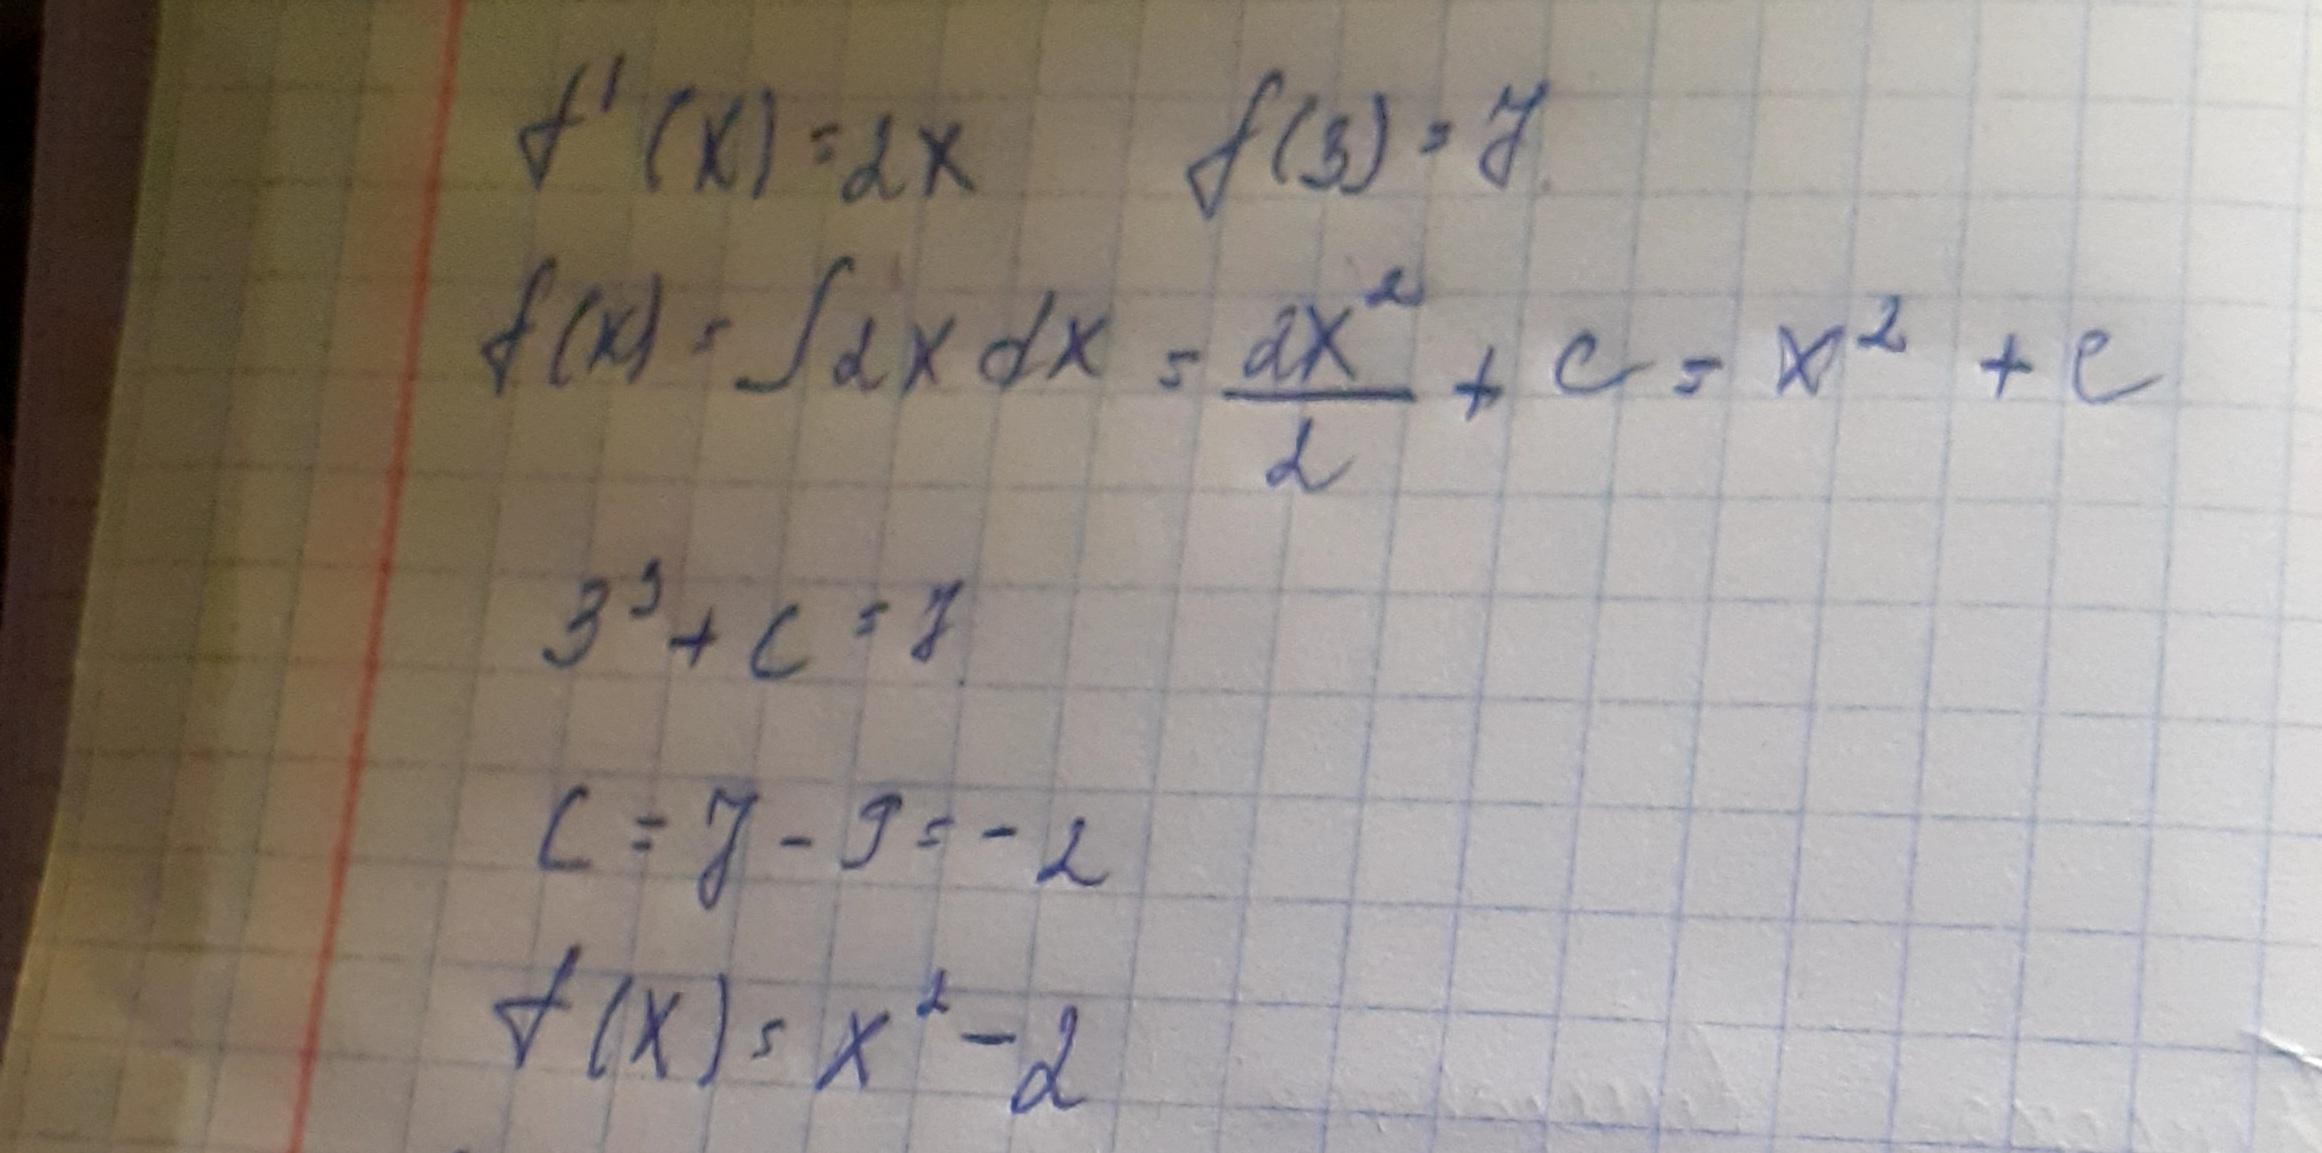 f'(x)=2x f(3)=7
f(x)=∫2x dx = 2x²/2 + c = x² + c
3³ + c = 7
c = 7 - 9 = -2
f(x) = x² - 2